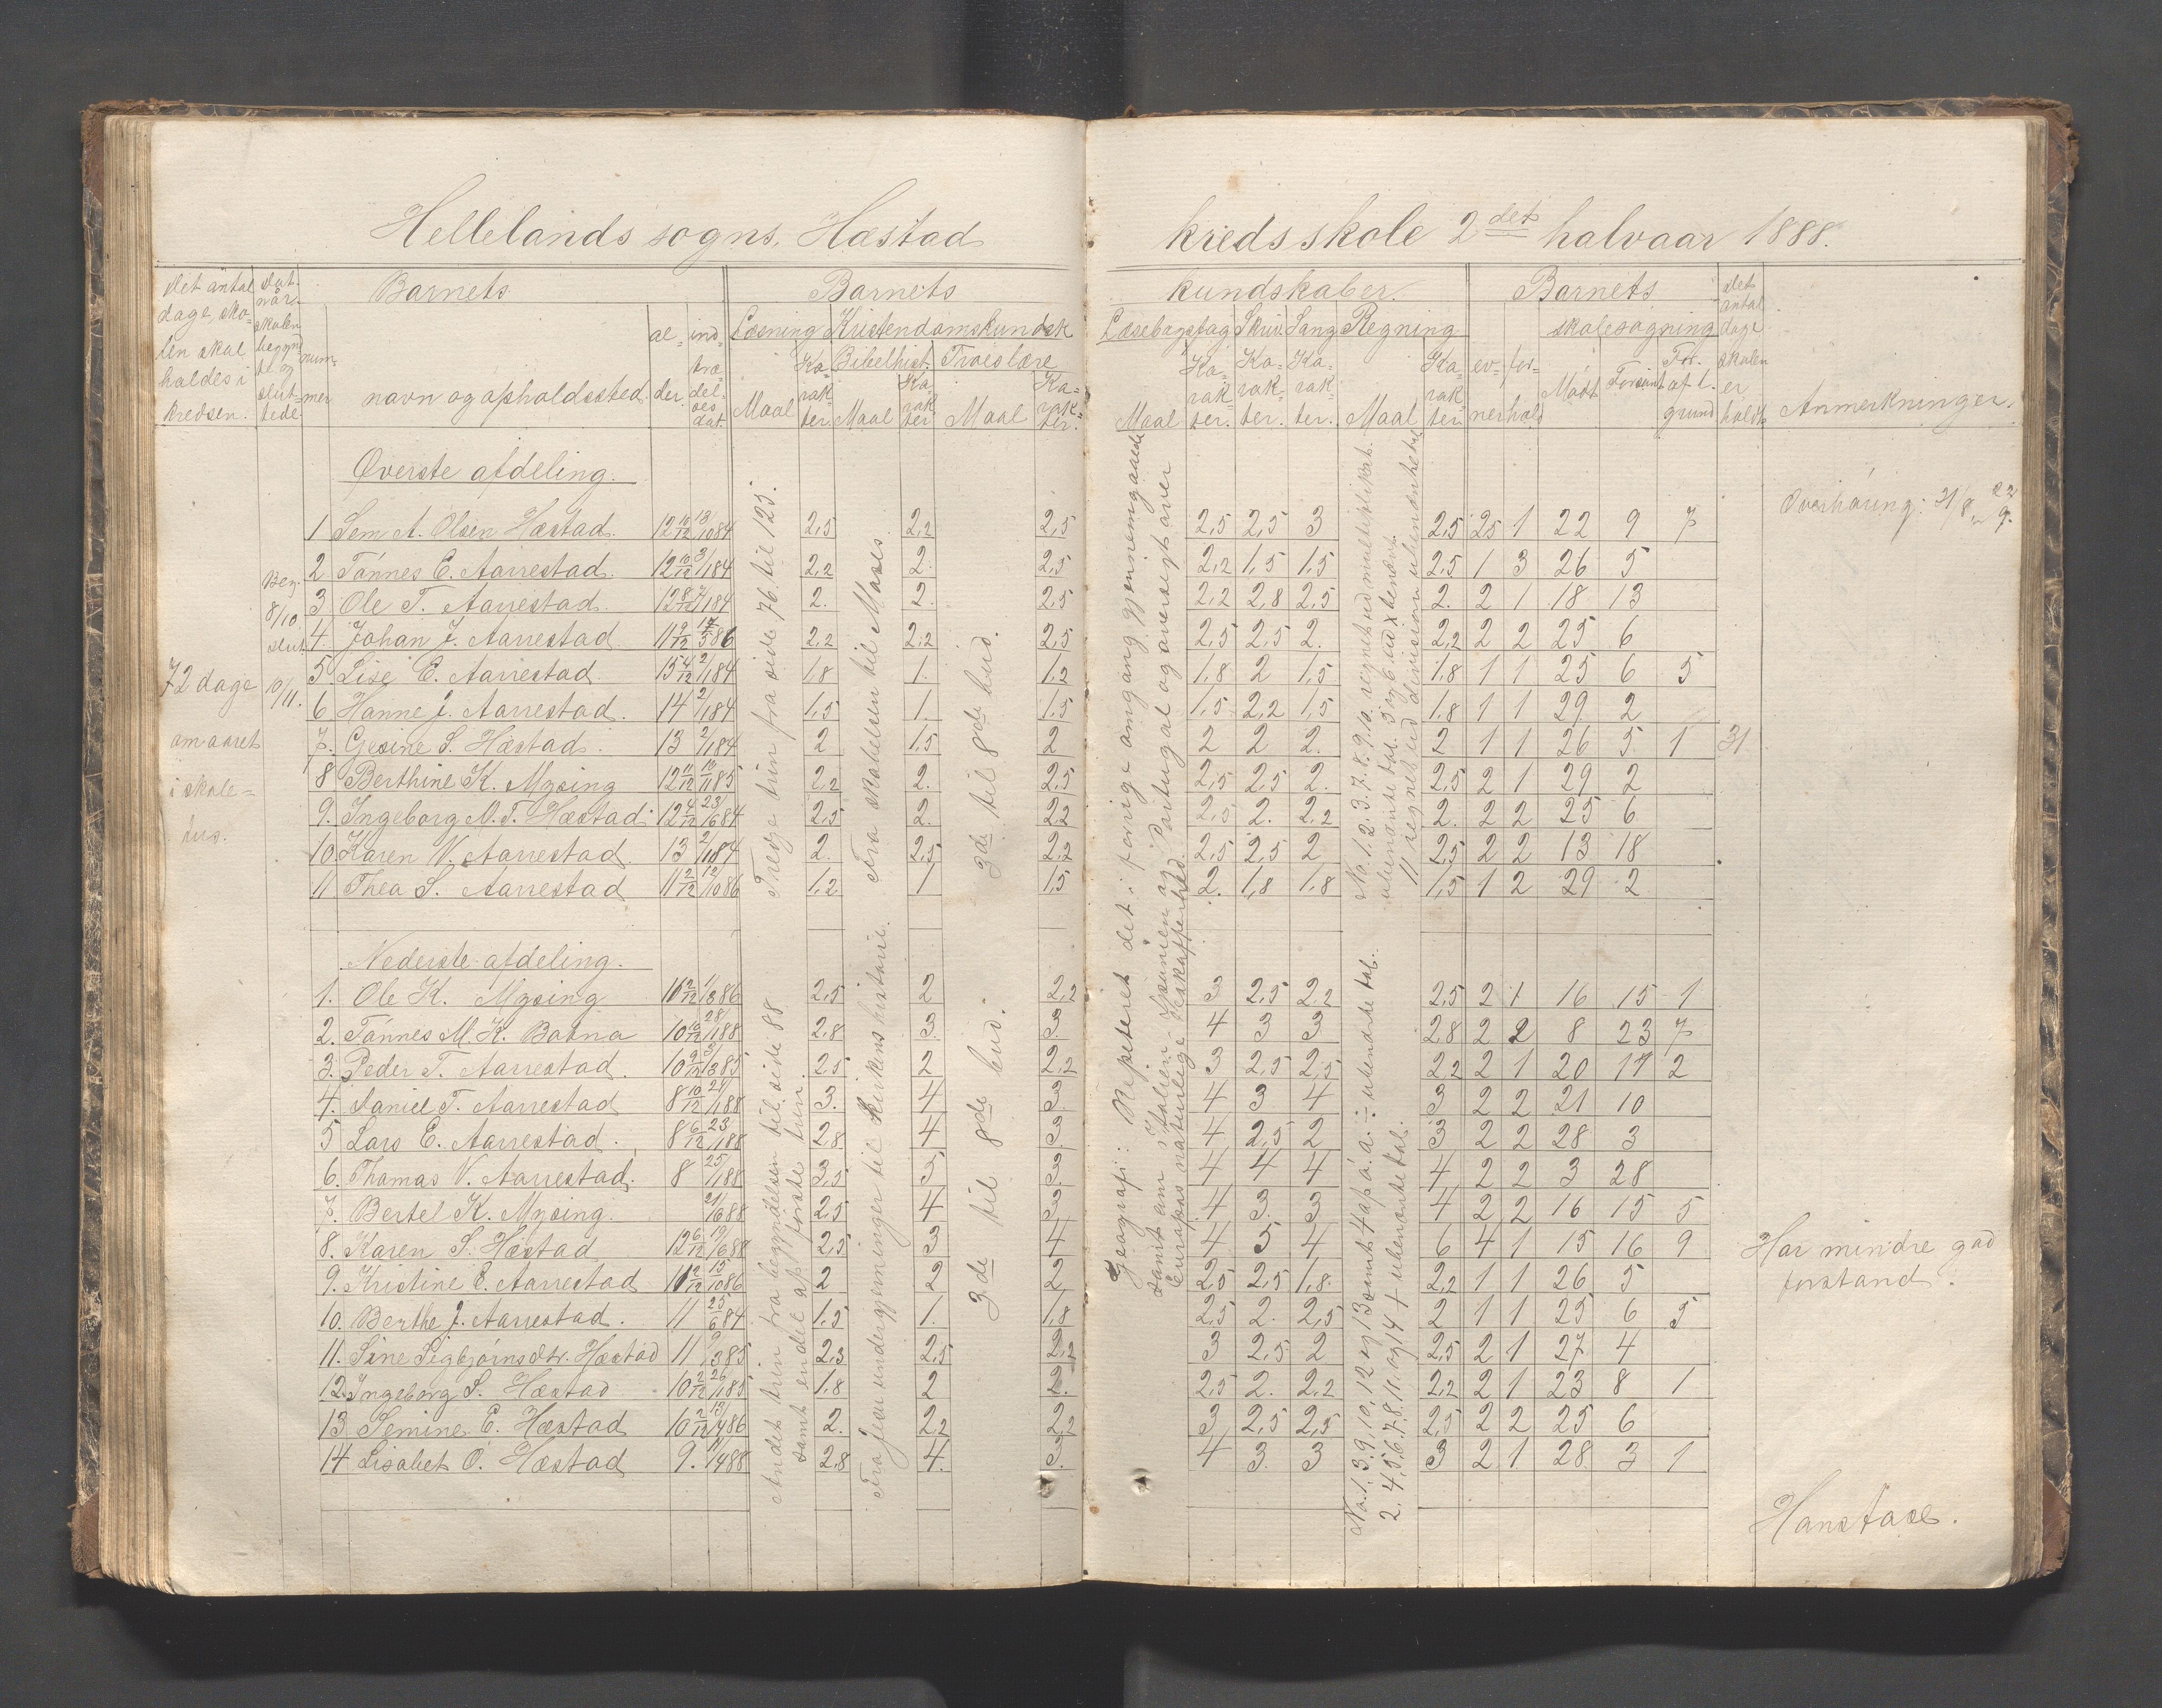 Hellelands sogns, Hæstad kredsskole 2det halvaar 1888.
det antal dage, skolen skal holdes i kredsen.
Dat. når skolen begyndte og sluttede
Barnets
nummer
navn og opholdssted
alder.
indtrædelsesdat.
Barnets kundskaber.
Læsning
Maal
Karakter.
Kristendomskundsk
Bibelhist.
Maal
Karakter
Troeslære
Maal
Karakter.
Læsebogsfag
Maal
Karakter.
Skriv.
Karakter.
Sang
Karakter.
Regning
Maal
Karakter
Barnets
evner
forhold
skolesøgning
Mødt
Forsømt
For. af l. grund
det antal dage skolen er holdt
Anmerkninger.
72 dage om aaret i skolehus.
Beg. 8/10 slut 10/11.
Øverste afdeling.
1 Sem A. Olsen Hæstad. 12 10/12 13/10 84 2,5 2,2 2,5 2,5 2,5 3 2,5 2,5 1 22 9 7
2 Tónnes E. Aarrestad. 12 10/12 3/1 84 2,2 2. 2,5 2,2 1,5 1,5 2,5 1 3 26 5
3 Ole T. Aarrestad. 12 8/12 7/1 84 2. 2. 2,5 2,2 2,8 2,5 2. 2 1 18 13
4. Johan J. Aarrestad 11 9/12 86 2,2 2,2 2,5 2,5 2,5 2. 2,2 2 2 25 6
5 Lise E. Aarrestad. 15 4/12 2/1 84 1,8 1. 1,2 1,8 2 1,5 1,8 1 1 25 6 5
6 Hanne J. Aarrestad. 14 2/1 84 1,5 1. 1,5 1,5 2,2 1,5 1,8 1 1 29 2
7. Gesine S. Hæstad. 13 2/1 84 2 1,5 2 2 2 2. 2 1 1 26 5 1 31
8 Berthine K. Mysing 12 11/12 13/11 85 2,2 2. 2,5 2,5 2,5 2. 2,5 2 1 29 2
9. Ingeborg N. T. Hæstad. 12 4/12 23/6 84 2,5 2. 2,2 2,5 2. 2,2 2. 2 2 25 6
10. Karen V. Aarrestad. 13 2/1 84 2. 2,5 2,2 2,5 2,5 2 2,5 2 2 13 18
11 Thea S. Aarrestad 11 2/12 12/10 86 1,2 1 1,5 2. 1,8 1,8 1,5 1 2 29 2
Tredge trin fra side 76 til 125.
Fra skabelsen til Moses.
3de til 8de bud.
Geografi: Repeteret det i forrige omgang gjennemgaaede samt om Italien - Spanien og Portugal og oversigt over Europas naturlige beskaffenhed.
No. 1. 2. 3. 7. 8. 9. 10. regnet ud multiplikat. ubenævnte tal. 5 og 6 ud x benævnt. 11 regnet ud divisionen ubenævnte tal.
Overhøring: 31/8 22/9.
Nederste afdeling.
1. Ole K. Mysing 10 2/12 1/3 86 2,5 2 2,2 3 2,5 2,2 2,5 2 1 16 15 1
2. Tónnes M. K. Botna 10 10/12 28/1 88 2,8 3. 3. 4 3 3 2,8 2 2 8 23 7
3. Peder T. Aarrestad. 10 9/12 3/3 85 2,5 2 2,2 3 2,5 2,5 2,2 2 1 20 11 2
4. Daniel T. Aarrestad 8 10/12 24/1 88 3. 4 3 4 3 4 3 2 2 21 10
5 Lars E. Aarrestad. 8 6/12 23/1 88 2,8 4 3. 4 2,5 2 3 2 2 28 3
6. Thomas V. Aarrestad. 8 25/1 88 3,5 3 3. 4 4 4 4 2 2 3 28
7. Bertel K. Mysing. 21/6 88 2,5 4 3. 4 3. 3 4 2 2 16 15 5
8. Karen S. Hæstad 12 6/12 19/6 88 2,5 3 4 4 5 4 6 4 1 15 16 9 Har mindre god forstand.
9. Kristine E. Aarrestad 10 2/12 15/10 86 2 2 2 2,5 2,5 1,8. 2,2 1 1 26 5
10. Berthe J. Aarrestad. 11 25/6 84 1,5 1. 1,8 2,5 2. 2,5 2 1 1 25 6 5
11. Sine Sigbjórnsdtr. Hæstad 11 9/3 85 2,3 2,5 2,2 3 2,5 2 2,5 2 1 27 4
12. Ingeborg S. Hæstad 10 2/12 26/1 85 1,8 2 2. 2,5 2. 2,2 2,2 2 1 23 8 1
13 Semine E. Hæstad 10 2/12 13/4 86 2. 2,2 2,2 3 2,5 2,5 2,5 2 2 25 6
14 Lisabet O. Hæstad 9. 11/4 88 2,8 4. 3. 4 3. 3 3 2 1 28 3 1
Andet trin fra begyndelsen til side 88 samt endel af første trin.
Fra jøernes undergjerninger til Kirkens historie.
3de til 8de bud.
No. 1. 3. 9. 10. 12 og 13 samt 4 ÷ ubenævnte tal.
2. 4. 5. 6. 7. 8. 11. og 14 + ubenævnte tal.
Hans Aase.